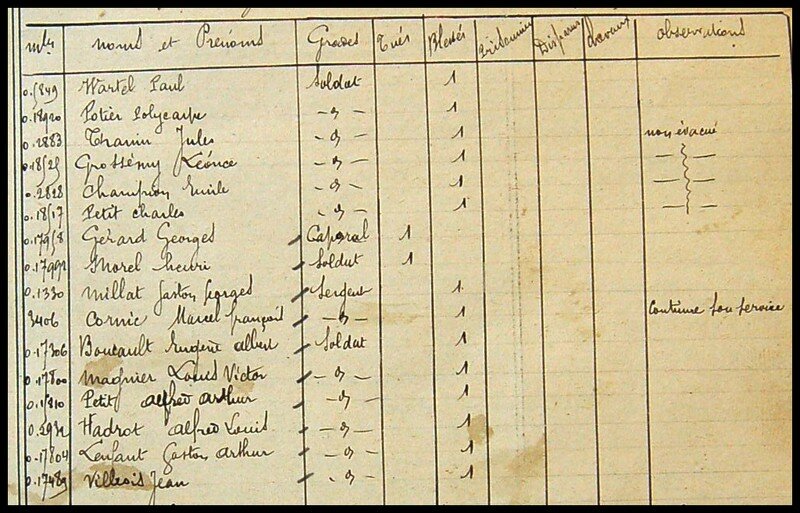 Mles noms et Prénoms Grades Tués Blessés Prisonniers Disparus chevaux observations
0.1849 Wartel Paul Soldat 1
0.18920 Potier Polycarpe -"- 1
0.2883 Thanin Jules -"- 1 non évacué
0.18125 Grossémy Léonce -"- 1 — —
0.2828 Champion Emile -"- 1 — —
0.18117 Petit charles -"- 1 — —
0.17958 Gérard Georges Caporal 1
0.17992 Morel henri Soldat 1
0.1330 Millat Gaston Georges Sergent 1
3406 Cornic Marcel françois -"- 1 Continue son service
0.17306 Boucault Eugène albert Soldat 1
0.17800 Magnier Louis Victor -"- 1
0.1810 Petit alfred arthur -"- 1
0.2932 Hadrot alfred Louis -"- 1
0.17804 Lenfant Gaston arthur -"- 1
0.17489 Villiois Jean -"- 1